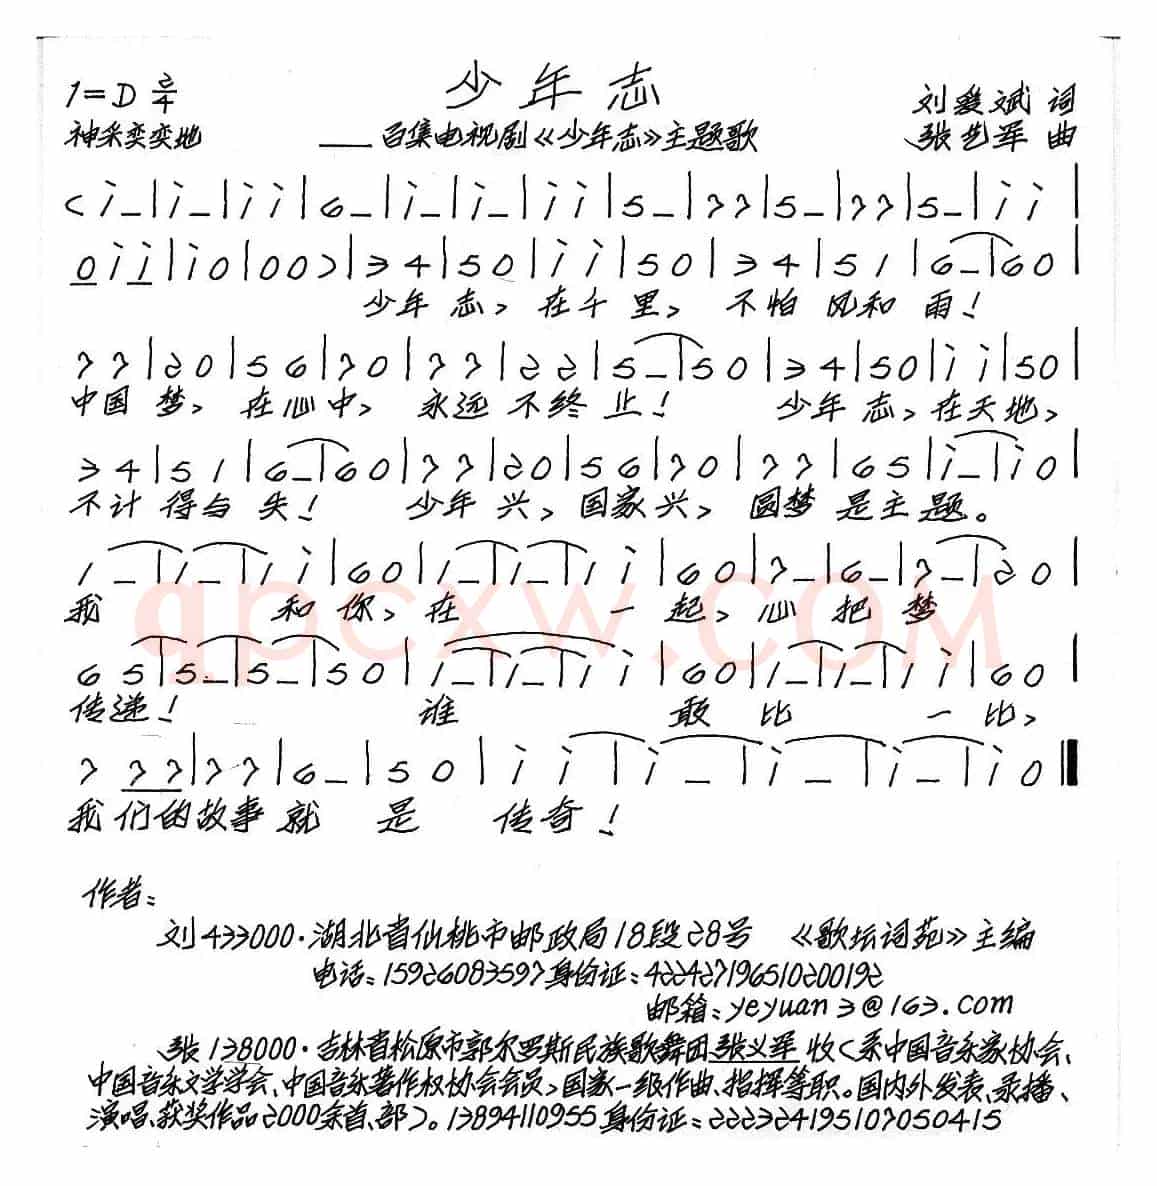 少年志
1=D 2/4
刘爱斌 词
神采奕奕地
——百集电视剧《少年志》主题歌
张艺军 曲
( i – | i – | i i | 6 – | i – | i – | i i | 5 – | 7 7 | 5 – | 7 7 | 5 – | i i |
0 i i | i 0 | 0 0 ) | 3 4 | 5 0 | i i | 5 0 | 3 4 | 5 1 | 6 – | 6 0 |
少年 志, 在千 里, 不怕 风和 雨!
7 7 | 2 0 | 5 6 | 7 0 | 7 7 | 2 2 | 5 – | 5 0 | 3 4 | 5 0 | i i | 5 0 |
中国 梦, 在心 中, 永远 不终 止! 少年 志, 在天 地,
3 4 | 5 1 | 6 – | 6 0 | 7 7 | 2 0 | 5 6 | 7 0 | 7 7 | 6 5 | i – | i 0 |
不计 得与 失! 少年 兴, 国家 兴, 圆梦 是主 题。
1 – | 1 – | 1 i | 6 0 | 1 – | 1 – | 1 i | 6 0 | 7 – | 6 – | 7 – | 2 0 |
我 和 你, 在 一 起, 心 把 梦
6 5 | 5 – | 5 – | 5 0 | 1 – | 1 – | 1 i | 6 0 | 1 – | 1 – | 1 i | 6 0 |
传递! 谁 敢 比 一 比,
7 7 7 | 7 7 | 6 – | 5 0 | i i | i – | i – | i – | i 0 ‖
我们的故事 就 是 传奇!
qpcxw.COM
作者:
刘 433000·湖北省仙桃市邮政局18段28号 《歌坛词苑》主编
电话:15926083597 身份证:422427196510200192
邮箱:yeyuan3@163.com
张 138000·吉林省松原市郭尔罗斯民族歌舞团张义军 收(系中国音乐家协会、
中国音乐文学学会、中国音乐著作权协会会员,国家一级作曲、指挥等职。国内外发表、录播、
演唱、获奖作品2000余首、部)。13894110955 身份证:222324195107050415